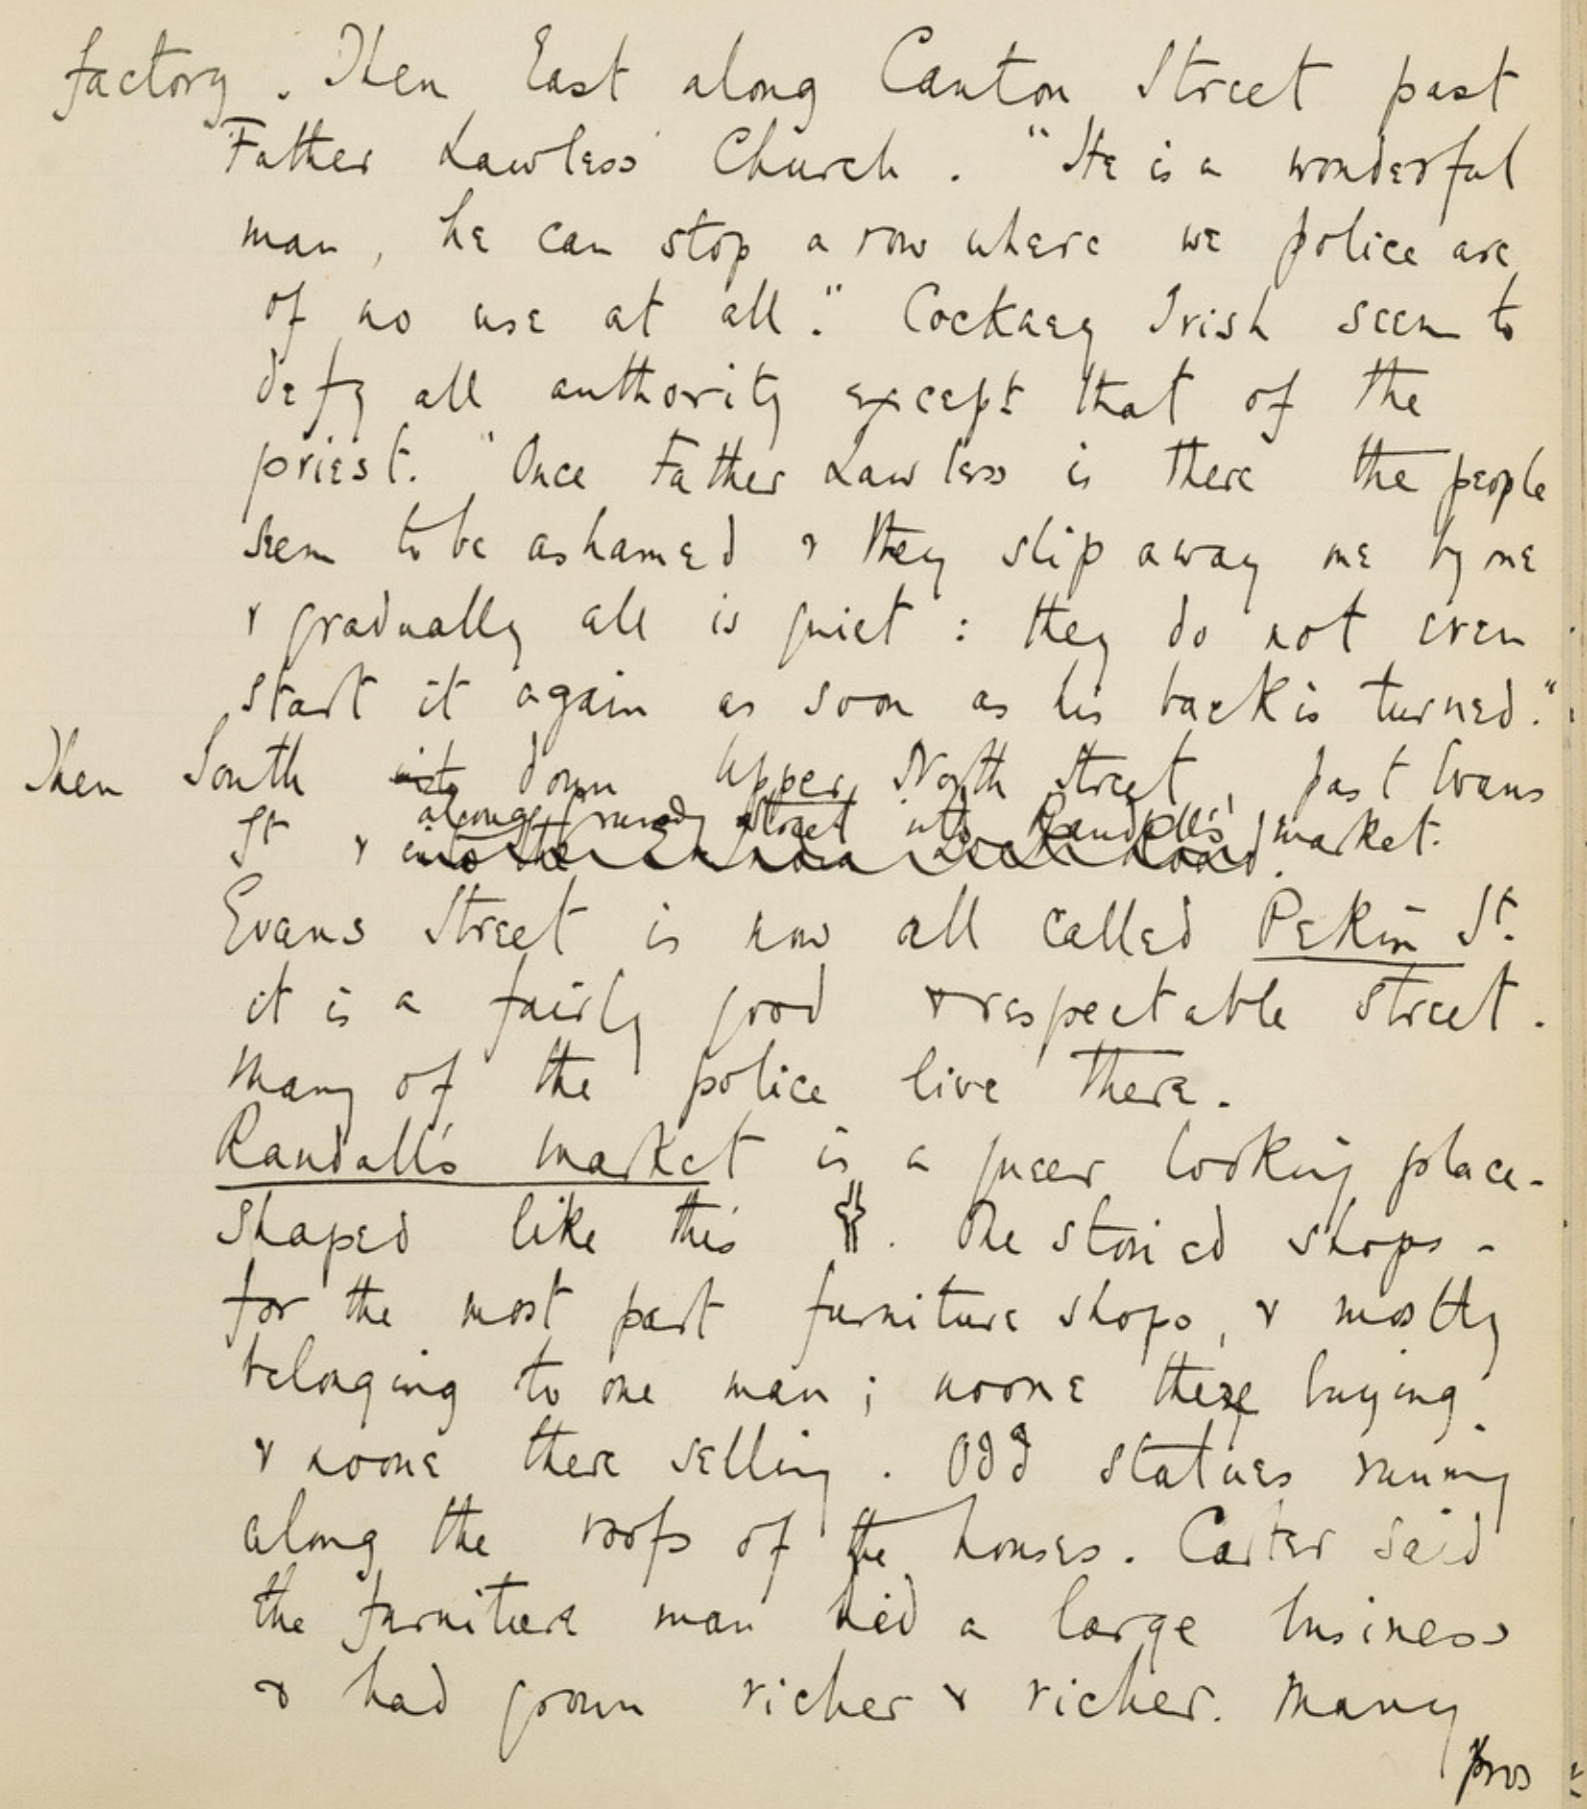 factory. Then East along Canton Street past
Father Lawless' Church. "He is a wonderful
man, he can stop a row where we police are
of no use at all." Cockney Irish seem to
defy all authority except that of the
priest. "Once Father Lawless is there the people
seem to be ashamed & they slip away one by one
& gradually all is quiet: they do not even
start it again as soon as his back is turned."
Then South into down Upper North Street, past Evans
along Grundy Street into Randall's market.
St & into the East India Dock Road.
Evans Street is now all called Pekin St.
it is a fairly good & respectable street.
Many of the police live there.
Randall's market is a queer looking place -
shaped like this. One storied shops -
for the most part furniture shops, & mostly
belonging to one man; noone there buying
& noone there selling. Odd statues running
along the roofs of the houses. Carter said
the furniture man did a large business
& had grown richer & richer. Many
pros